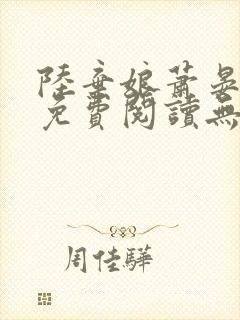 陸棄娘蕭晏
免費閱讀無
周佳驊